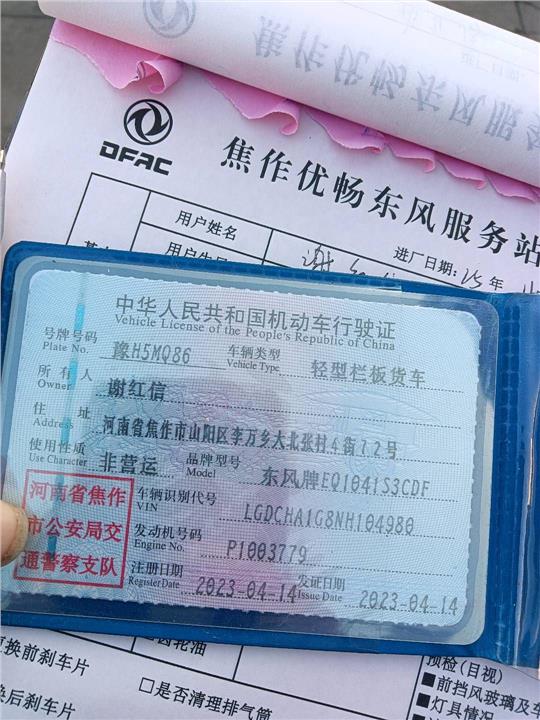 DFAC
焦作优畅东风服务站
用户姓名
进厂日期: 15年
中华人民共和国机动车行驶证
Vehicle License of the People's Republic of China
号牌号码 豫H5MQ86 车辆类型 轻型栏板货车
Plate No. Vehicle Type
所有人 谢红信
Owner
住址 河南省焦作市山阳区李万乡大北张村4街72号
Address
使用性质 非营运 品牌型号 东风牌EQ1041S3CDF
Use Character Model
河南省焦作
市公安局交
通警察支队
车辆识别代号 LGDCHA1G8NH104980
VIN
发动机号码 P1003779
Engine No.
注册日期 2023-04-14 发证日期 2023-04-14
Register Date Issue Date
更换前刹车片
换后刹车片
□是否清理排气筒
预检(目视)
■前挡风玻璃及车
■灯具情况